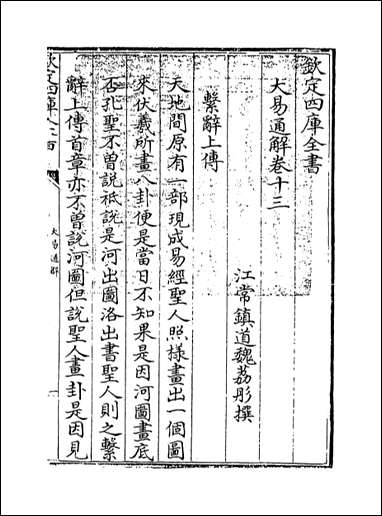 欽定四庫全書
大易通解卷十三
江常鎮道魏荔彤撰
繫辭上傳
天地間原有一部現成易經聖人照様畫出一個圖
來伏羲所畫八卦便是當日不知果是因河圖畫底
否孔聖不曽說祗說是河出圖洛出書聖人則之繫
辭上傳首章亦不曽說河圖但說聖人畫卦是因見
欽定四庫全書
大易通解
一